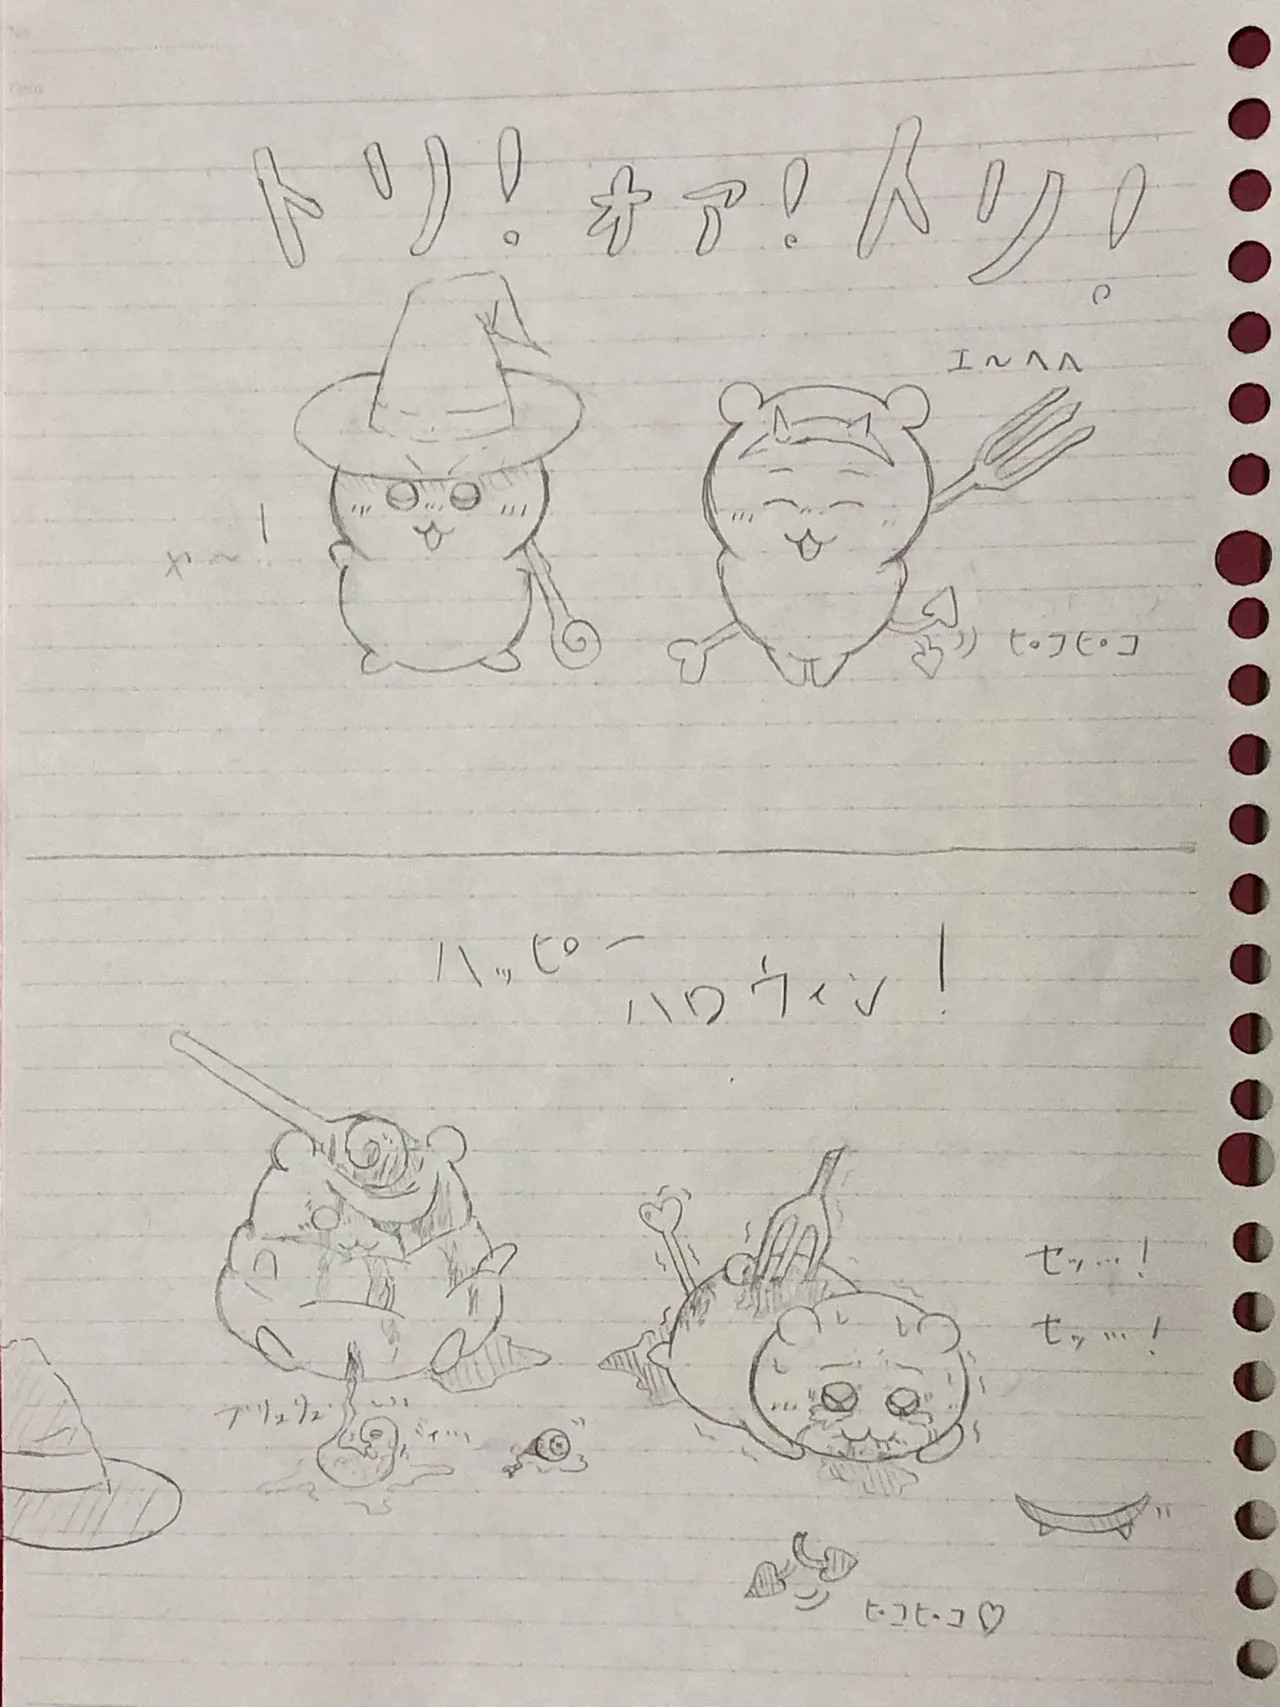 トリ！ォア！トリ！
エ～ヘヘ
ヤ～！
ピコピコ
ハッピー
ハロウィン！
セッ…！
セッ…！
ブリュリュ
ミィ…
ピコピコ♡